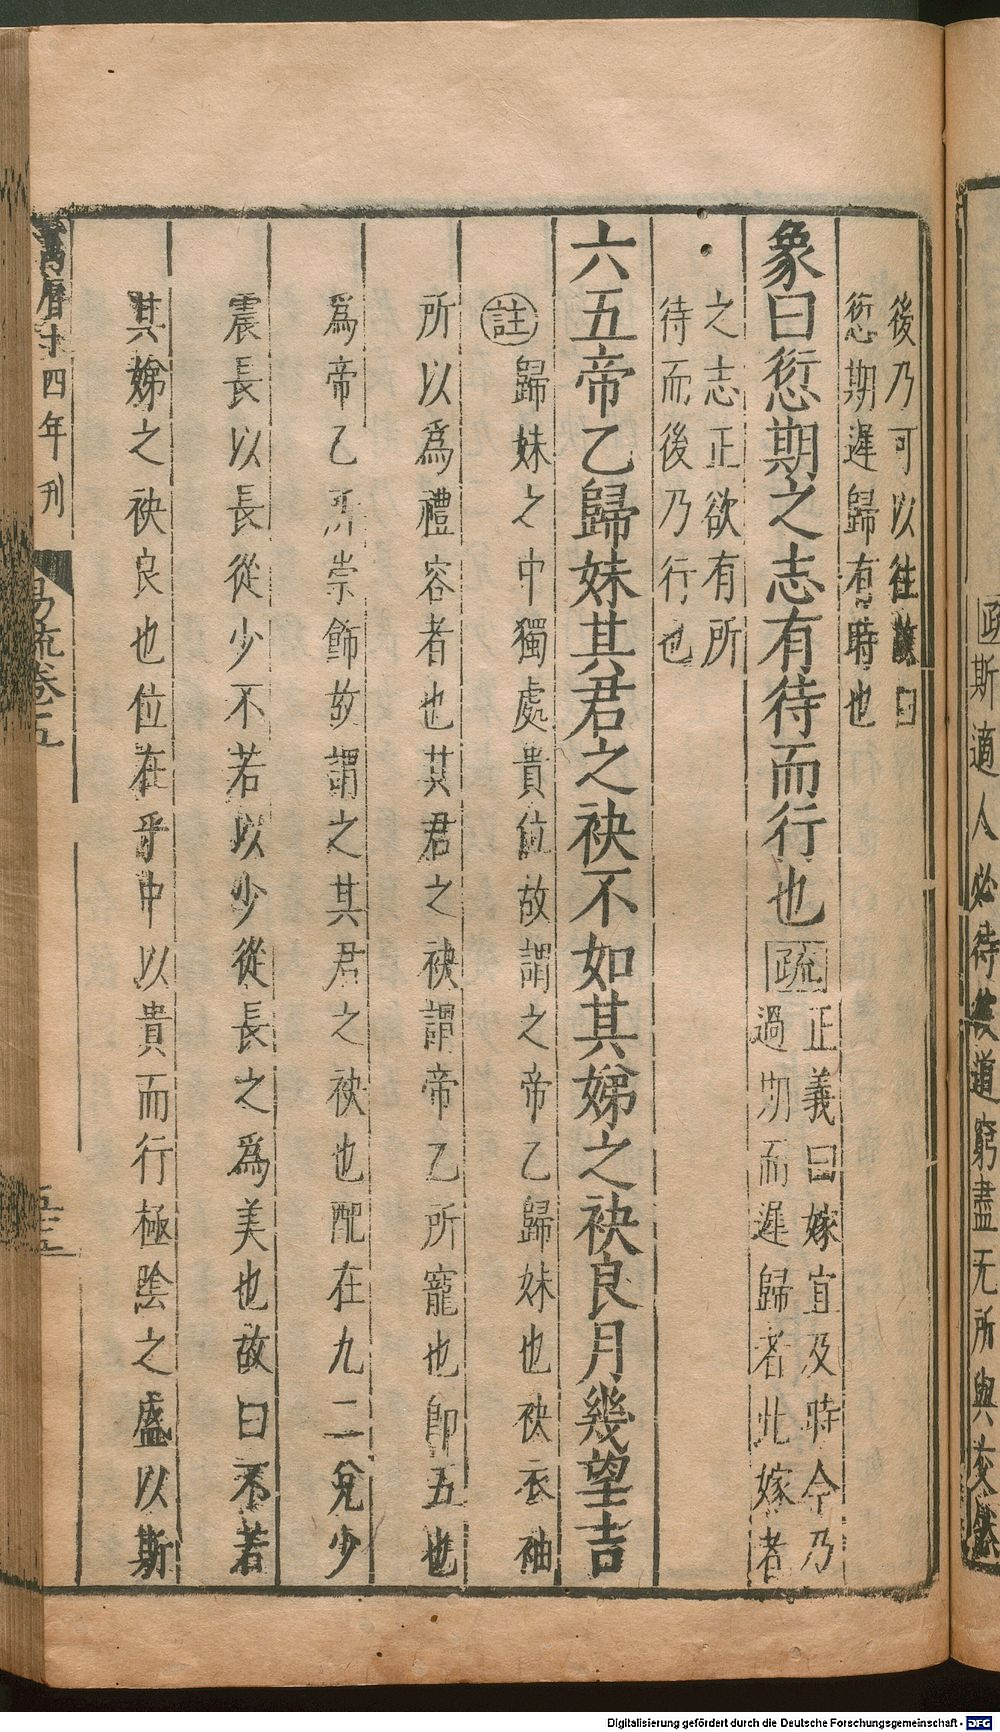 疏斯適人必待道窮盡无所與交然
後乃可以往故曰
愆期遲歸有時也
象曰愆期之志有待而行也疏
正義曰嫁宜及時今乃
過期而遲歸者此嫁者
之志正欲有所
待而後乃行也
六五帝乙歸妹其君之袂不如其娣之袂良月幾望吉
註歸妹之中獨處貴位故謂之帝乙歸妹也袂衣袖
所以爲禮容者也其君之袂謂帝乙所寵也卽五也
爲帝乙所崇飾故謂之其君之袂也配在九二兌少
震長以長從少不若以少從長之爲美也故曰不若
其娣之袂良也位在乎中以貴而行極陰之盛以斯
萬曆十四年刊
易疏卷五
五十三
Digitalisierung gefördert durch die Deutsche Forschungsgemeinschaft - DFG